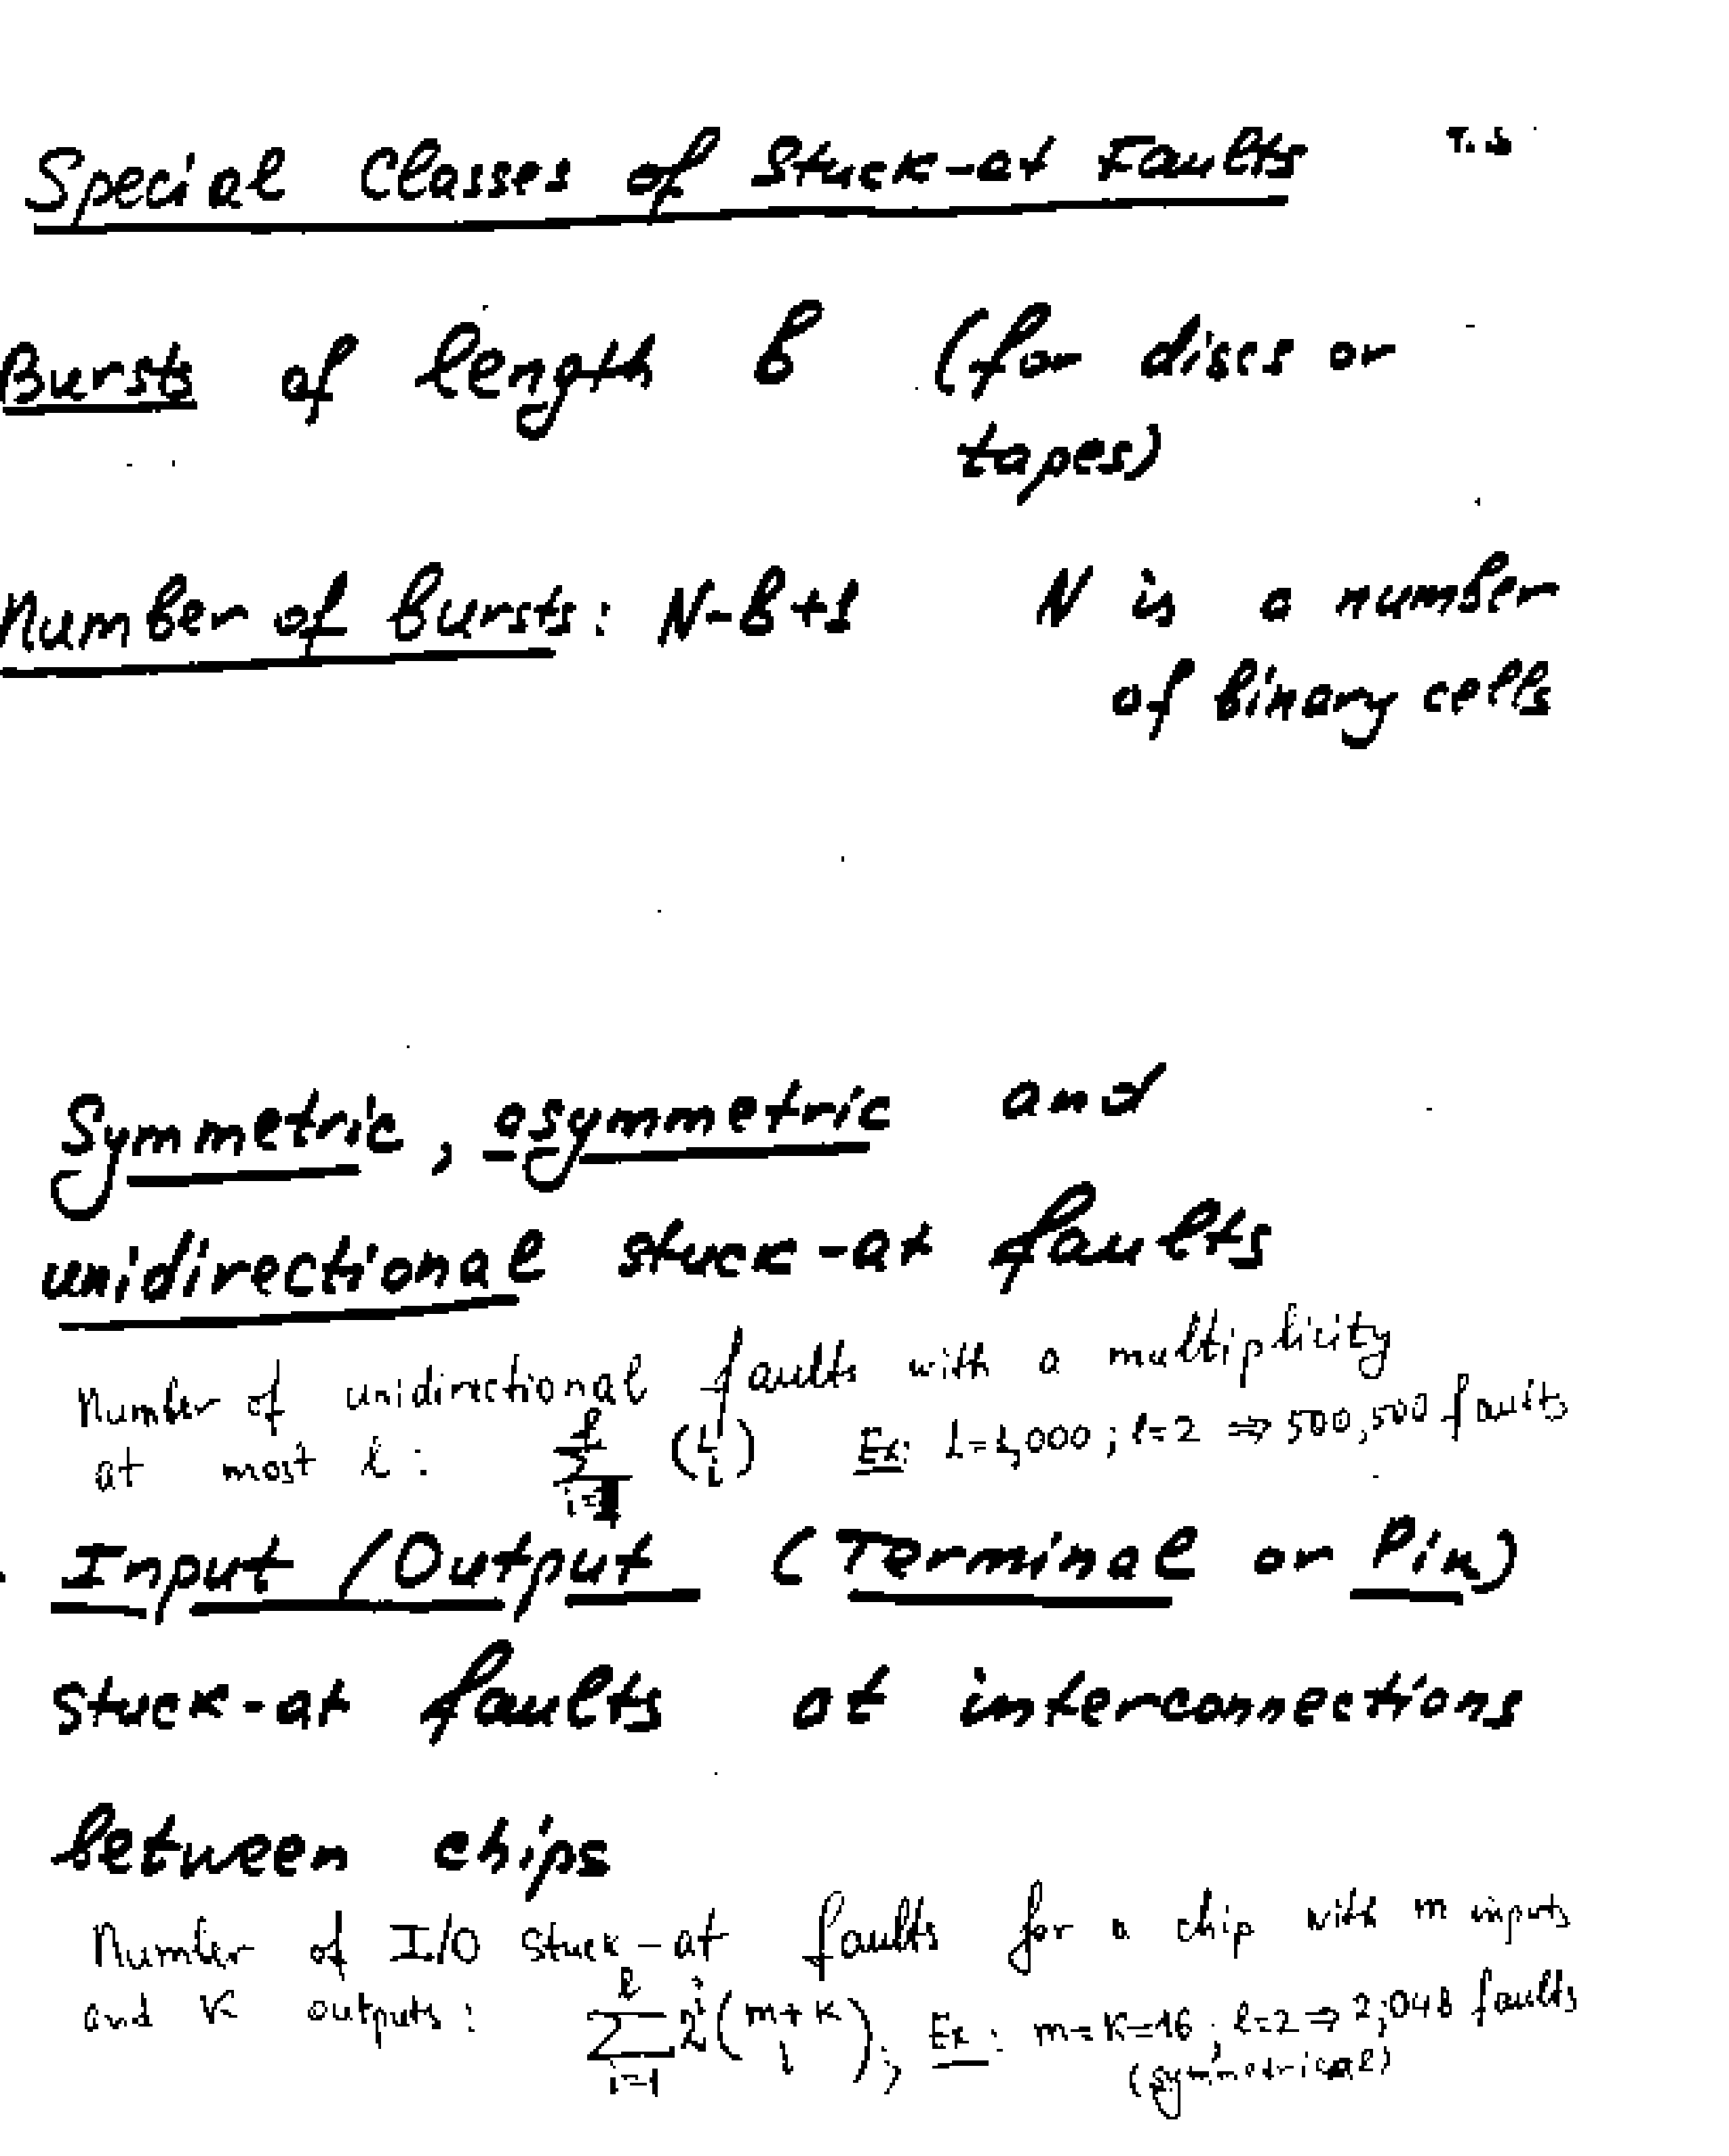 Special Classes of Stuck-at Faults
Bursts of length b (for discs or
tapes)
Number of bursts: N-b+1 N is a number
of binary cells
Symmetric, asymmetric and
unidirectional stuck-at faults
Number of unidirectional faults with a multiplicity
at most l: \sum_{i=1}^{l} \binom{L}{i} Ex: L=1,000; l=2 ⇒ 500,500 faults
Input/Output (Terminal or Pin)
stuck-at faults at interconnections
between chips
Number of I/O stuck-at faults for a chip with m inputs
and K outputs: \sum_{i=1}^{l} 2^i \binom{m+K}{i}; Ex: m=K=16; l=2 ⇒ 2,048 faults
(symmetrical)